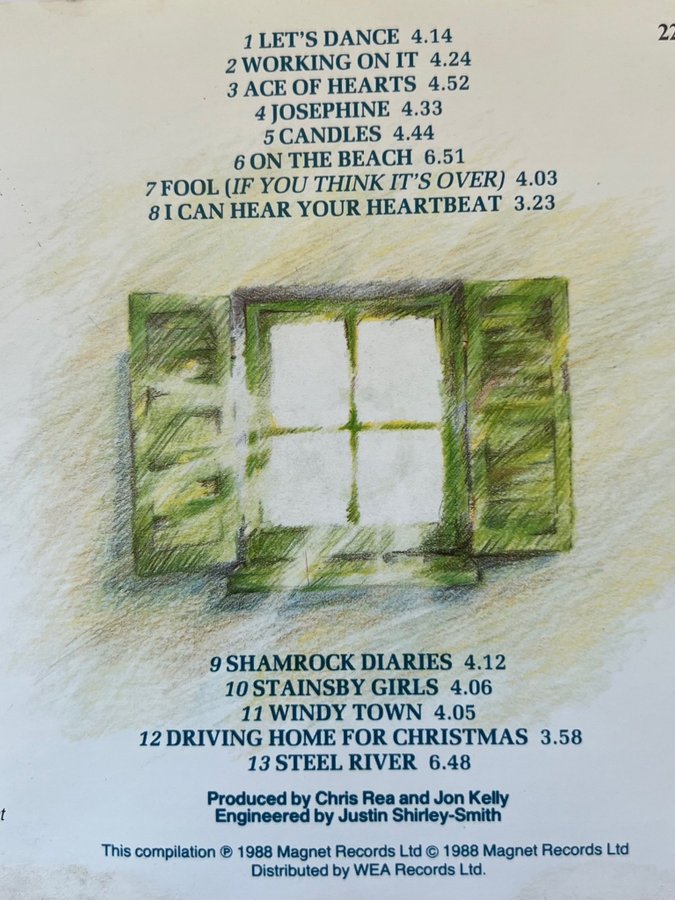 22
1 LET'S DANCE 4.14
2 WORKING ON IT 4.24
3 ACE OF HEARTS 4.52
4 JOSEPHINE 4.33
5 CANDLES 4.44
6 ON THE BEACH 6.51
7 FOOL (IF YOU THINK IT'S OVER) 4.03
8 I CAN HEAR YOUR HEARTBEAT 3.23
9 SHAMROCK DIARIES 4.12
10 STAINSBY GIRLS 4.06
11 WINDY TOWN 4.05
12 DRIVING HOME FOR CHRISTMAS 3.58
13 STEEL RIVER 6.48
Produced by Chris Rea and Jon Kelly
Engineered by Justin Shirley-Smith
This compilation ℗ 1988 Magnet Records Ltd © 1988 Magnet Records Ltd
Distributed by WEA Records Ltd.